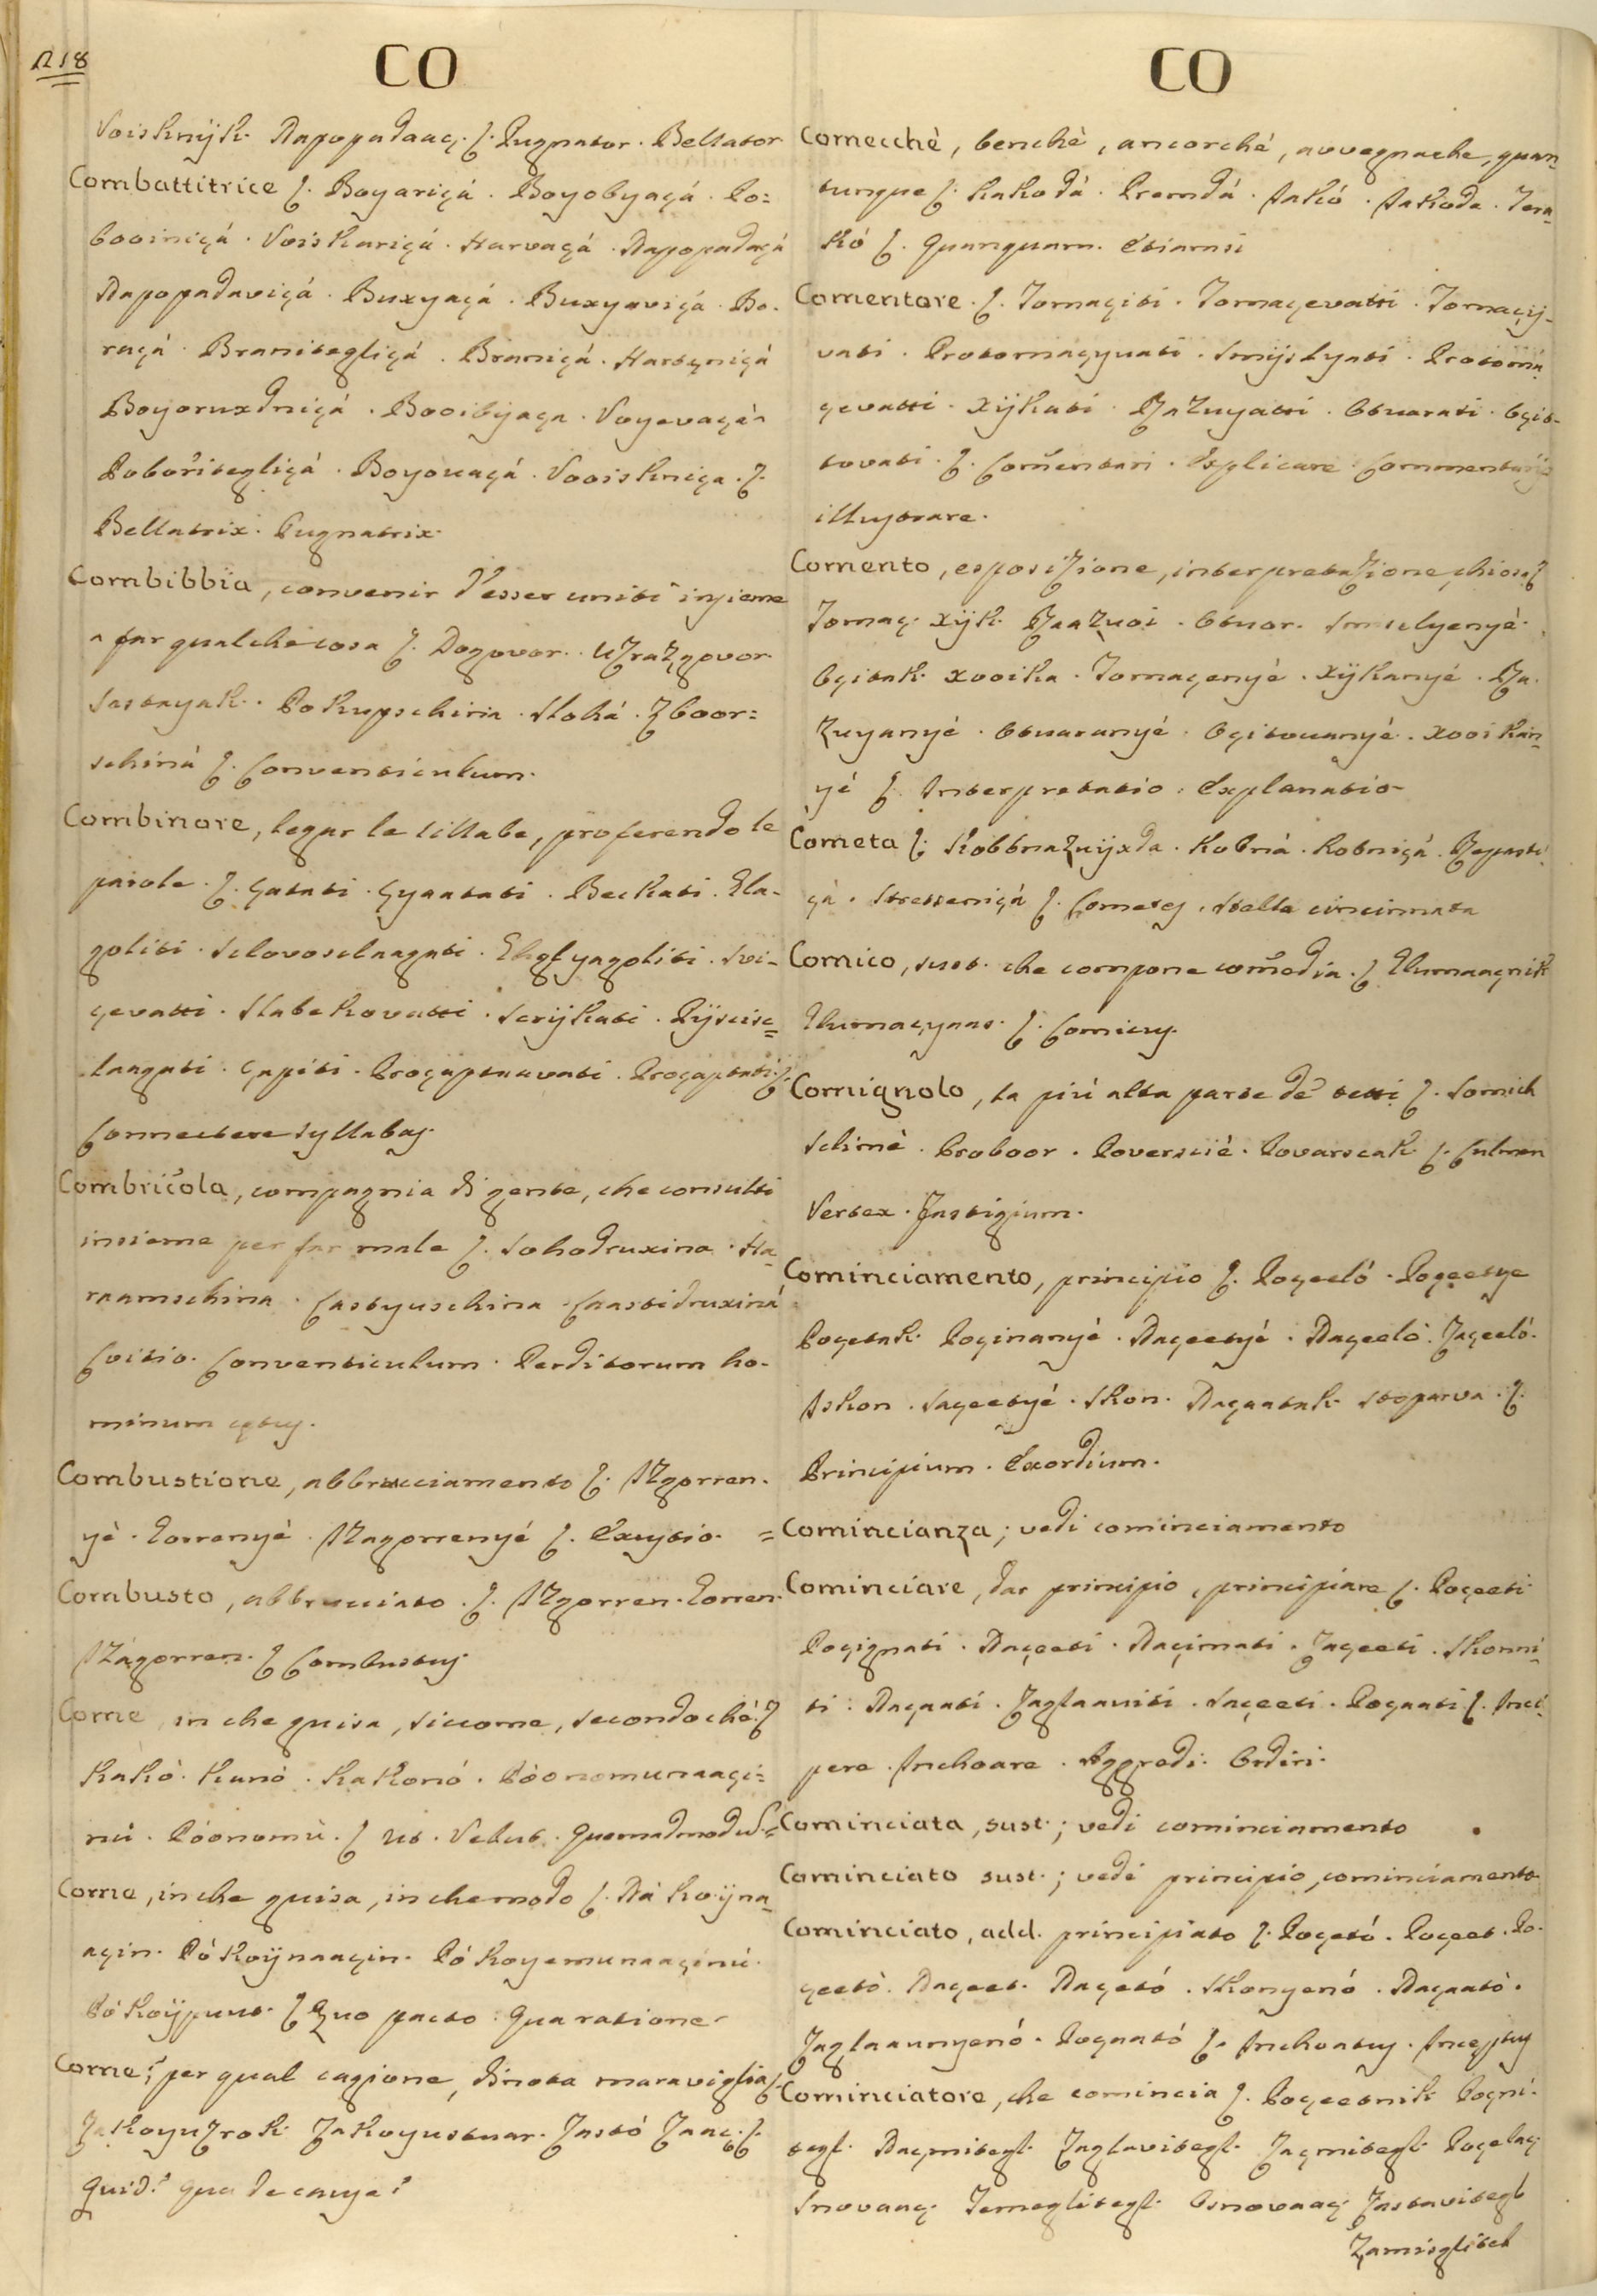 218
CO
Voisknÿk. Napopadaaç. ſ. Pugnator. Bellator
Combattitrice ſ. Boyariçá. Boyobyaçá. Po=
booiniçá. Voiskariçá. Harvaçá. Napopadaçá
Napopadaviçá. Buxyaçá. Buxyaviçá. Bo-
raçá. Branitegliçá. Braniçá. Hartçniçá
Boyoruxdniçá. Booibÿaça. Voyevaçá.
Poboritegliçá. Boyouaçá. Vooiskniça. ſ.
Bellatrix. Pugnatrix.
Combibbia, convenir d'esser uniti insieme
a far qualche cosa ſ. Dogovor. Uzrazgovor.
Sastayak. Pokupschina. Stohá. Zboor=
schiná ſ. Conventiculum.
Combinare, legar le sillabe, proferendo le
parole. ſ. Çatati. Çyaatati. Beckati. Gla-
goliti. Slovoslaagati. Sri-
çevatti. Slabekovatti. Scrÿkati.
laagati. Çapiti. Proçaptauvati. Proçaptati. ſ.
Connectere syllabas.
Combriccola, compagnia di gente, che consulti
insieme per far male ſ. Sohodruxina. Ha-
raamschina. Çastyuschina Çaastidruxiná
Coitio. Conventiculum. Perditorum ho-
minum çetus.
Combustione, abbrucciamento ſ. Izgorren-
yé. Gorrenyé. Nagorrenyé ſ. Exustio.
Combusto, abbrucciato. ſ. Izgorren. Gorren.
Nagorren. ſ Combustus
Come, in che guisa, siccome, secondochè. ſ
Kakó. Kunó. Kakonó. Póonomunaaçi=
nú. Póonomú. ſ Ut. Velut. Quemadmodu=
Come, in che guisa, in che modo ſ. Ná koÿna-
açin. Pó koÿnaaçin. Pó koyemunaaçinú.
Pó koÿpuut. ſ Quo pacto. Qua ratione.
Come? per qual cagione, dinota maraviglia ſ.
Zakoyuzrok Zakoyustuar. Zastó Zaaç. ſ.
Quid? Qua de causa?
CO
Comecchè, benchè, ancorchè, avvegnache, quan-
tunque ſ. Kakodá. Premdá. Jakó. Jakoda. Tera-
kó ſ. Quanquam. Etiamsi
Comentare. ſ. Tomaçiti. Tomaçevatti. Tomaçÿ-
vati. Protomaçyuati. Smÿslyati. Protoma-
çevatti. Xÿkati. Razuyatti. Otuarati. Oçit-
tovati. ſ. Com̃entari. Explicare. Commentarÿs
illustrare.
Comento, esposizione, interpretazione, chiosa ſ
Tomaç. Xÿk. Raazuoi. Otuor. Smislyenyé.
Oçitak. Xooika. Tomaçenyé. Xÿkanyé. Ra-
zuyanyé. Otuaranyé. Oçitouanyé. Xooikan-
yé ſ. Interpretatio. Explanatio
Cometa ſ. Kobbnazuÿxda. Kobná. Kobniçá. Repasti-
çá. Stresseniçá ſ. Cometes. Stella cincinnata
Comico, sust. che compone com̃edia. ſ Glumaaçnik
Glumaçyaas. ſ. Comicus.
Comignolo, la più alta parte de' tetti ſ. Somich
Slimé. Proboor. Poversiié. Povarscak ſ. Culmen
Vertex. Fastigium.
Cominciamento, principio ſ. Poçeeló. Poçeetye
Poçetak. Poçinanyé. Naçeetyé. Naçeeló. Zaçeeló.
Iskon. Saçeetyé. Skon. Naçaatak. Stoparva. ſ.
Principium. Exordium.
Comincianza; vedi cominciamento
Cominciare, dar principio, principiare ſ. Poçeeti
Poçignati. Naçeeti. Naçimati. Zaçeeti. Skonni-
ti. Naçaati. Zaglaauiti. Saçeeti. Poçaati ſ. Inci-
pere. Inchoare. Aggredi. Ordiri.
Cominciata, sust.; vedi cominciamento
Cominciato sust.; vedi principio, cominciamento
Cominciato, add. principiato ſ. Poçetó. Poçeet. Po-
çeetó. Naçeet. Naçetó. Skonyenó. Naçaató.
Zaglaaunyenó. Poçaató ſ. Inchoatus. Inceptus
Cominciatore, che comincia ſ. Poçeetnik Poçni-
tegl. Naçmitegl. Zaglavitegl. Zaçmitegl. Poçelaç
Snovaaç Temeglitegl. Osnovaaç Zastavitegl
Zamisglitel